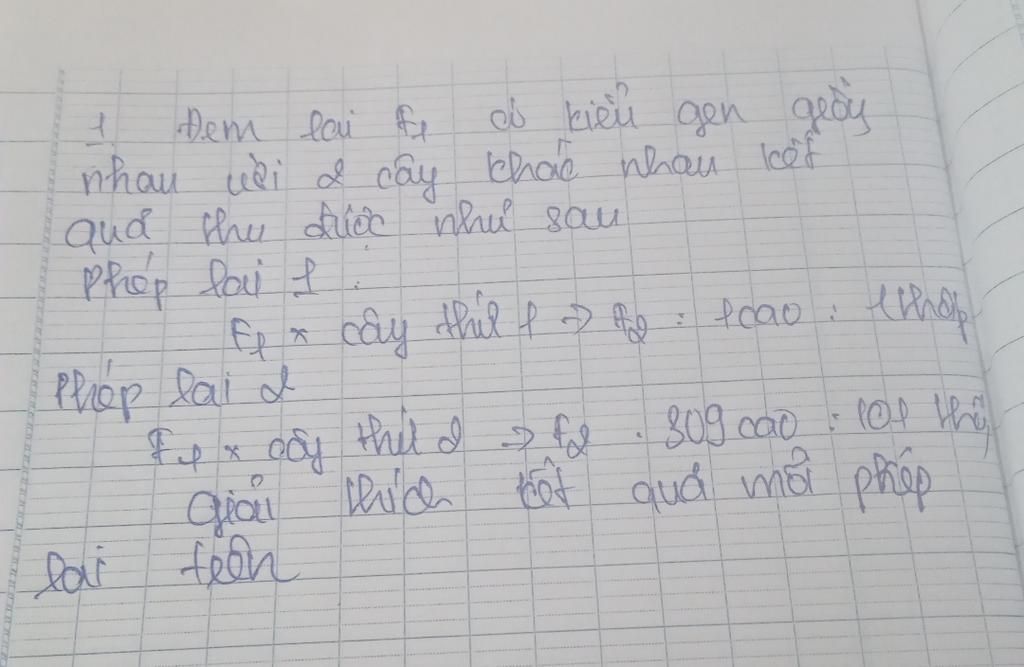 1 Đem lai F1 có kiểu gen giống
nhau với 2 cây khác nhau kết
quả thu được như sau
Phép lai 1:
F1 x cây thứ 1 → F2 : 1 cao : 1 thấp
Phép lai 2
F1 x cây thứ 2 → F2 . 309 cao : 101
Giải thích kết quả mỗi phép
lai trên